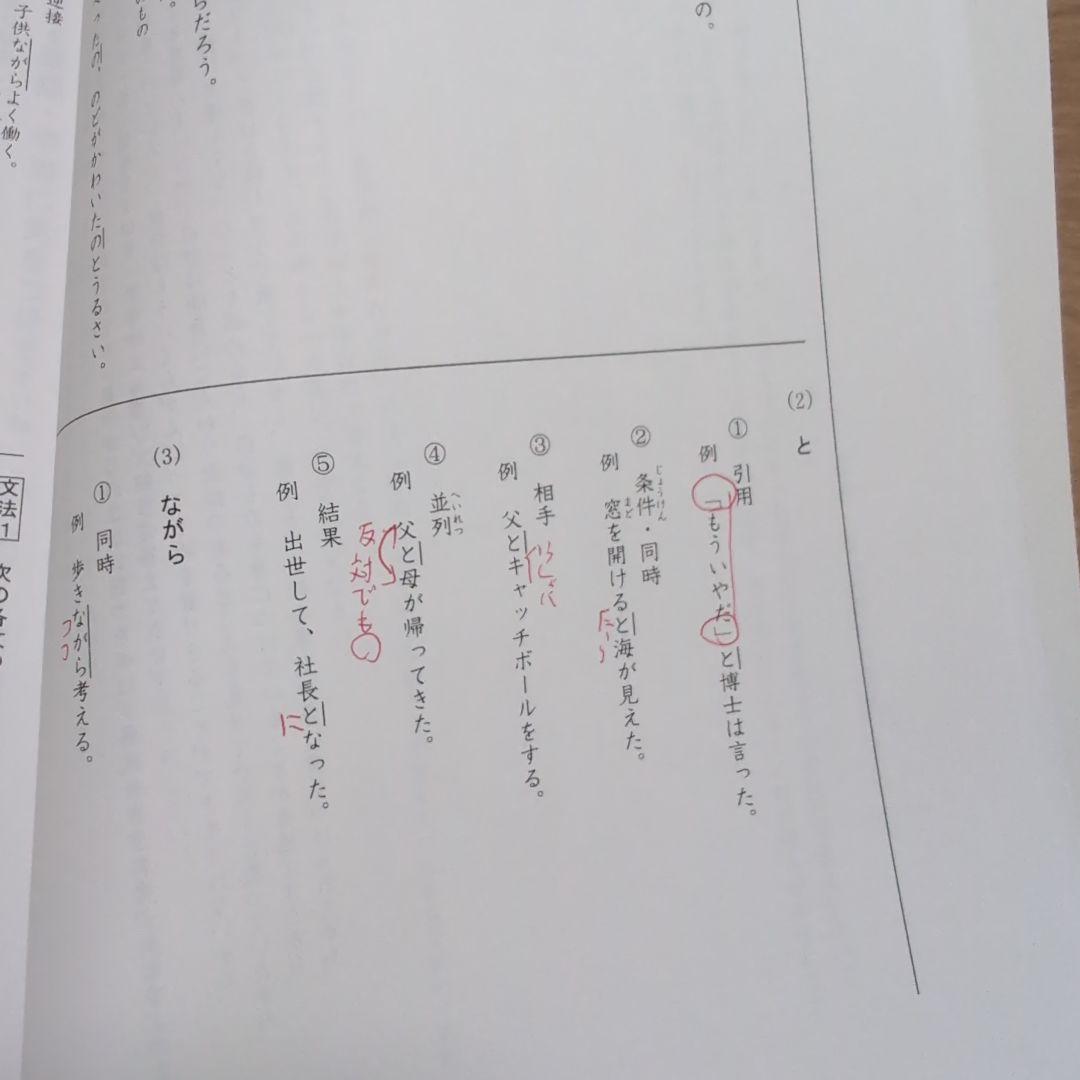 の。
らだろう。
のもの
たの、のどがかわいたのとうるさい。
逆接
子供ながらよく働く。
(2) と
① 引用
例 「もういやだ」と博士は言った。
② 条件・同時
じょうけん
例 窓を開けると海が見えた。
まど
たら
③ 相手
例 父とキャッチボールをする。
いっしょに
④ 並列
へいれつ
例 父と母が帰ってきた。
反対でも○
⑤ 結果
例 出世して、社長となった。
に
(3) ながら
① 同時
例 歩きながら考える。
つつ
文法1